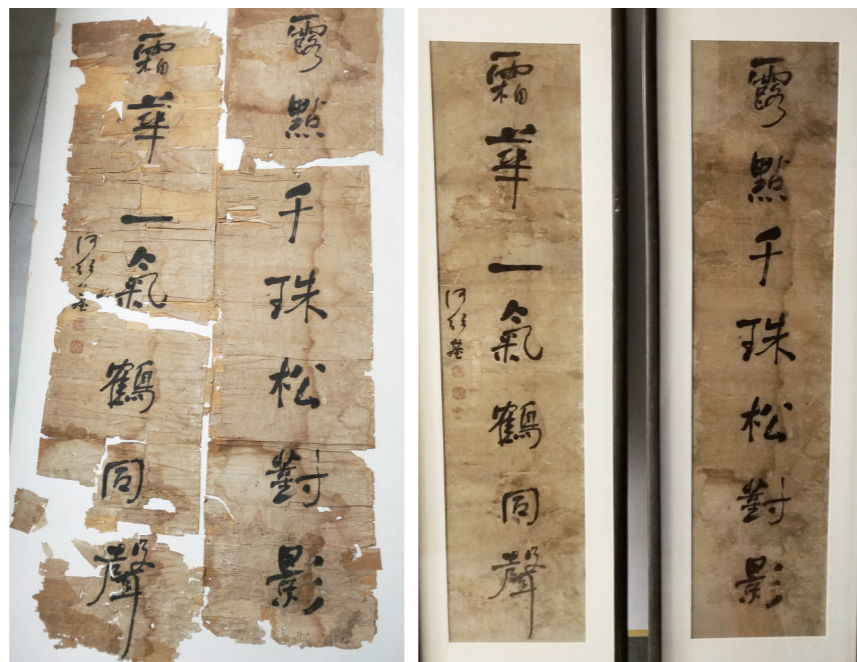 露點千珠松對影
霜華一氣鶴同聲
何紹基
露點千珠松對影
霜華一氣鶴同聲
何紹基